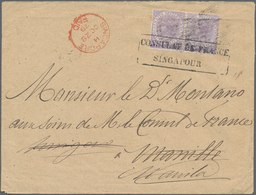 CONSULAT DE FRANCE
SINGAPOUR
Monsieur le Dr Montano
aux soins de M. le Consul de France
à Manille
Manila